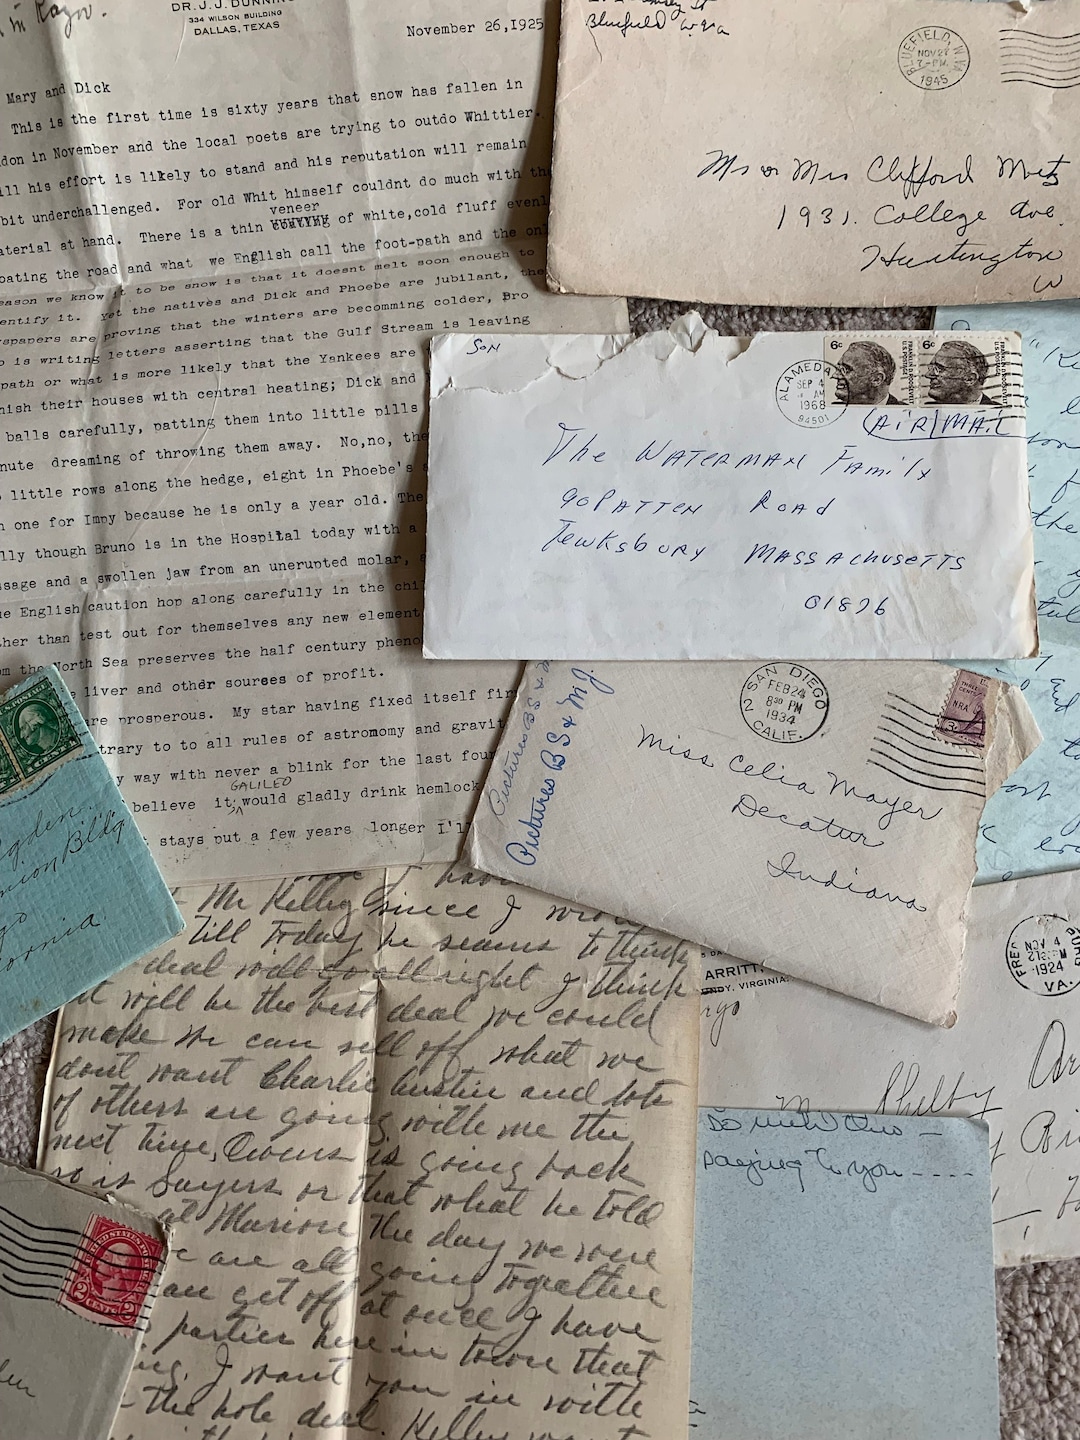 in Razor.
DR. J. J. DUNNING
334 WILSON BUILDING
DALLAS, TEXAS
November 26,1925
Mary and Dick
This is the first time is sixty years that snow has fallen in
don in November and the local poets are trying to outdo Whittier.
ill his effort is likely to stand and his reputation will remain
bit underchallenged. For old Whit himself couldnt do much with th
veneer
aterial at hand. There is a thin coating of white,cold fluff evenl
oating the road and what we English call the foot-path and the onl
eason we know it to be snow is that it doesnt melt soon enough to
entify it. Yet the natives and Dick and Phoebe are jubilant, the
spapers are proving that the winters are becomming colder, Bro
o is writing letters asserting that the Gulf Stream is leaving
path or what is more likely that the Yankees are
nish their houses with central heating; Dick and
balls carefully, patting them into little pills
nute dreaming of throwing them away. No,no, the
little rows along the hedge, eight in Phoebe's
n one for Impy because he is only a year old. The
lly though Bruno is in the Hospital today with a
ssage and a swollen jaw from an unerupted molar,
ue English caution hop along carefully in the chi
ther than test out for themselves any new element
om the North Sea preserves the half century pheno
e liver and other sources of profit.
are prosperous. My star having fixed itself fir
trary to to all rules of astromomy and gravit
y way with never a blink for the last four
GALILEO
believe it, would gladly drink hemlock
t stays put a few years longer I'll
Bluefield W.Va
BLUEFIELD, W. VA.
NOV 27
7-PM
1945
Mr or Mrs Clifford Mitz
1931. College Ave.
Huntington
W
SON
6c
FRANKLIN D ROOSEVELT
U.S. POSTAGE
6c
FRANKLIN D ROOSEVELT
U.S. POSTAGE
ALAMEDA
SEP 4
AM
1968
94501
AIR MAIL
The WATERMAN Family
90 PATTEN ROAD
TEWKSBURY MASSACHUSETTS
01876
Pictures BS & M
Pictures BS & MJ.
SAN DIEGO
2 CALIF.
FEB 24
8 30 PM
1934
THREE CENTS
NRA
3c
Miss Celia Mayer
Decatur
Indiana
gden.
nion Bldg
go
ornia
I have
Mr Kelley since I wrote
till Today he seems to think
deal will go all right I think
it will be the best deal we could
make we can sell off what we
dont want Charlie Austin and lots
of others are going with me the
next time, Owens is going back
so is Sayers or that what he told
at Marion The day we were
e are all going together
an get off at once I have
parties here in town that
ing. I want you in with
the hole deal. Kelley want
ARRITT,
NDY, VIRGINIA.
rgo
FREDERICKSBURG
NOV 4
1924
VA.
Shelby Ar
Do
paying to you ----
UNITED STATES POSTAGE
2 CENTS 2